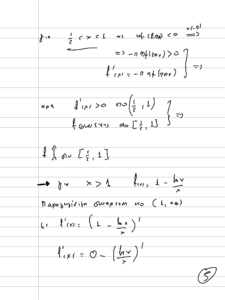 για 1/2 < x < 1 => ημ(2πx) < 0 =>
=> -π ημ(2πx) > 0
f'(x) = -π ημ(2πx) } =>
αρα f'(x) > 0 στο (1/2, 1)
f συνεχης στο [1/2, 1] } =>
f ↑ στο [1/2, 1]
→ για x > 1 f(x) = 1 - lnx/x
Παραγωγισιμη συναρτηση στο (1, +∞)
με f'(x) = (1 - lnx/x)'
f'(x) = 0 - (lnx/x)'
5